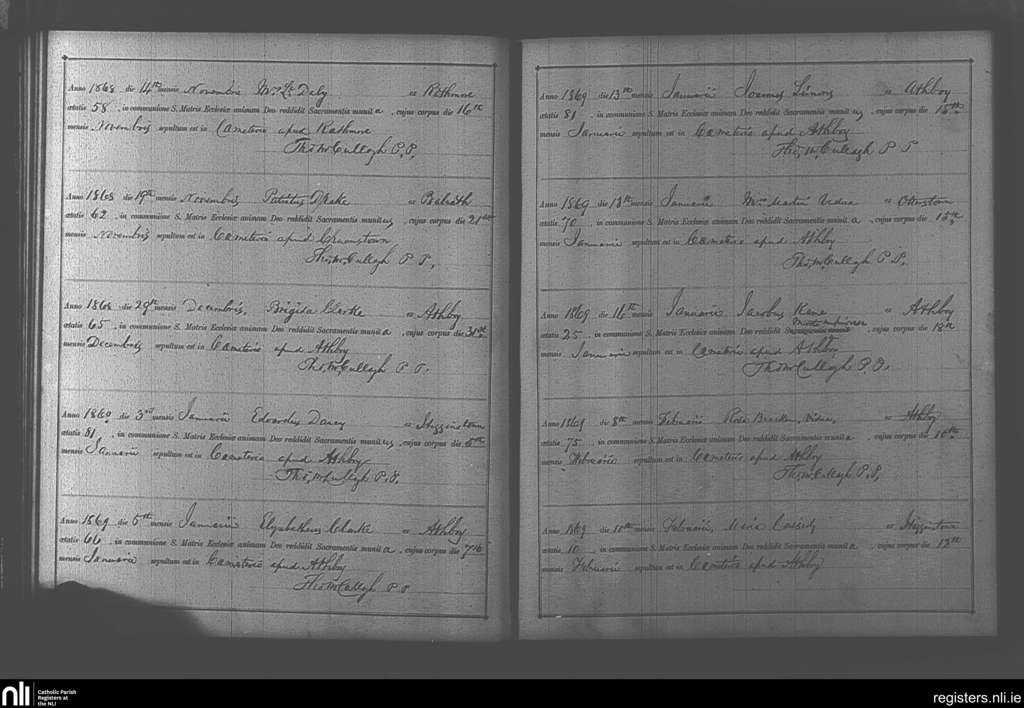 Anno 1868 die 14th mensis Novembris Mrs Daly ex Rathmore
ætatis 58, in communione S. Matris Ecclesiæ animam Deo reddidit Sacramentis munita, cujus corpus die 16th
mensis Novembris sepultum est in Cæmeterio apud Rathmore
Thos McCullagh P.P.
Anno 1868 die 19th mensis Novembris Patritius Drake ex Balrath
ætatis 62, in communione S. Matris Ecclesiæ animam Deo reddidit Sacramentis munitus, cujus corpus die 21st
mensis Novembris sepultum est in Cæmeterio apud Girvanstown
Thos McCullagh P P.
Anno 1868 die 29th mensis Decembris, Brigida Clarke ex Athboy
ætatis 65, in communione S. Matris Ecclesiæ animam Deo reddidit Sacramentis munita, cujus corpus die 31st
mensis Decembris sepultum est in Cæmeterio apud Athboy
Thos McCullagh P P.
Anno 1869 die 3rd mensis Januarii Edvardus Darcy ex Higginstown
ætatis 81, in communione S. Matris Ecclesiæ animam Deo reddidit Sacramentis munitus, cujus corpus die 5th
mensis Januarii sepultum est in Cæmeterio apud Athboy
Thos McCullagh P.P.
Anno 1869 die 5th mensis Januarii Elizabetha Clarke ex Athboy
ætatis 66, in communione S. Matris Ecclesiæ animam Deo reddidit Sacramentis munita, cujus corpus die 7th
mensis Januarii sepultum est in Cæmeterio apud Athboy
Thos McCullagh P P
Anno 1869 die 13th mensis Januarii Joannes ex Athboy
ætatis 81, in communione S. Matris Ecclesiæ animam Deo reddidit Sacramentis munitus, cujus corpus die 15th
mensis Januarii sepultum est in Cæmeterio apud Athboy
Thos McCullagh P P
Anno 1869 die 13th mensis Januarii Mrs Martin Vidua ex
ætatis 70, in communione S. Matris Ecclesiæ animam Deo reddidit Sacramentis munita, cujus corpus die 15th
mensis Januarii sepultum est in Cæmeterio apud Athboy
Thos McCullagh P.P.
Anno 1869 die 16th mensis Januarii Jacobus Kane ex Athboy
ætatis 25, in communione S. Matris Ecclesiæ animam Deo reddidit Sacramentis munitus, cujus corpus die 18th
mensis Januarii sepultum est in Cæmeterio apud Athboy
Thos McCullagh P.P.
Anno 1869 die 8th mensis Februarii Rosa Bracken, Vidua, ex Athboy
ætatis 75, in communione S. Matris Ecclesiæ animam Deo reddidit Sacramentis munita, cujus corpus die 10th
mensis Februarii sepultum est in Cæmeterio apud Athboy
Thos McCullagh P.P.
Anno 1869 die 10th mensis Februarii, Maria Cassidy ex Higginstown
ætatis 10, in communione S. Matris Ecclesiæ animam Deo reddidit Sacramentis munita, cujus corpus die 12th
mensis Februarii sepultum est in Cæmeterio apud Athboy
nli Catholic Parish
Registers at
the NLI
registers.nli.ie